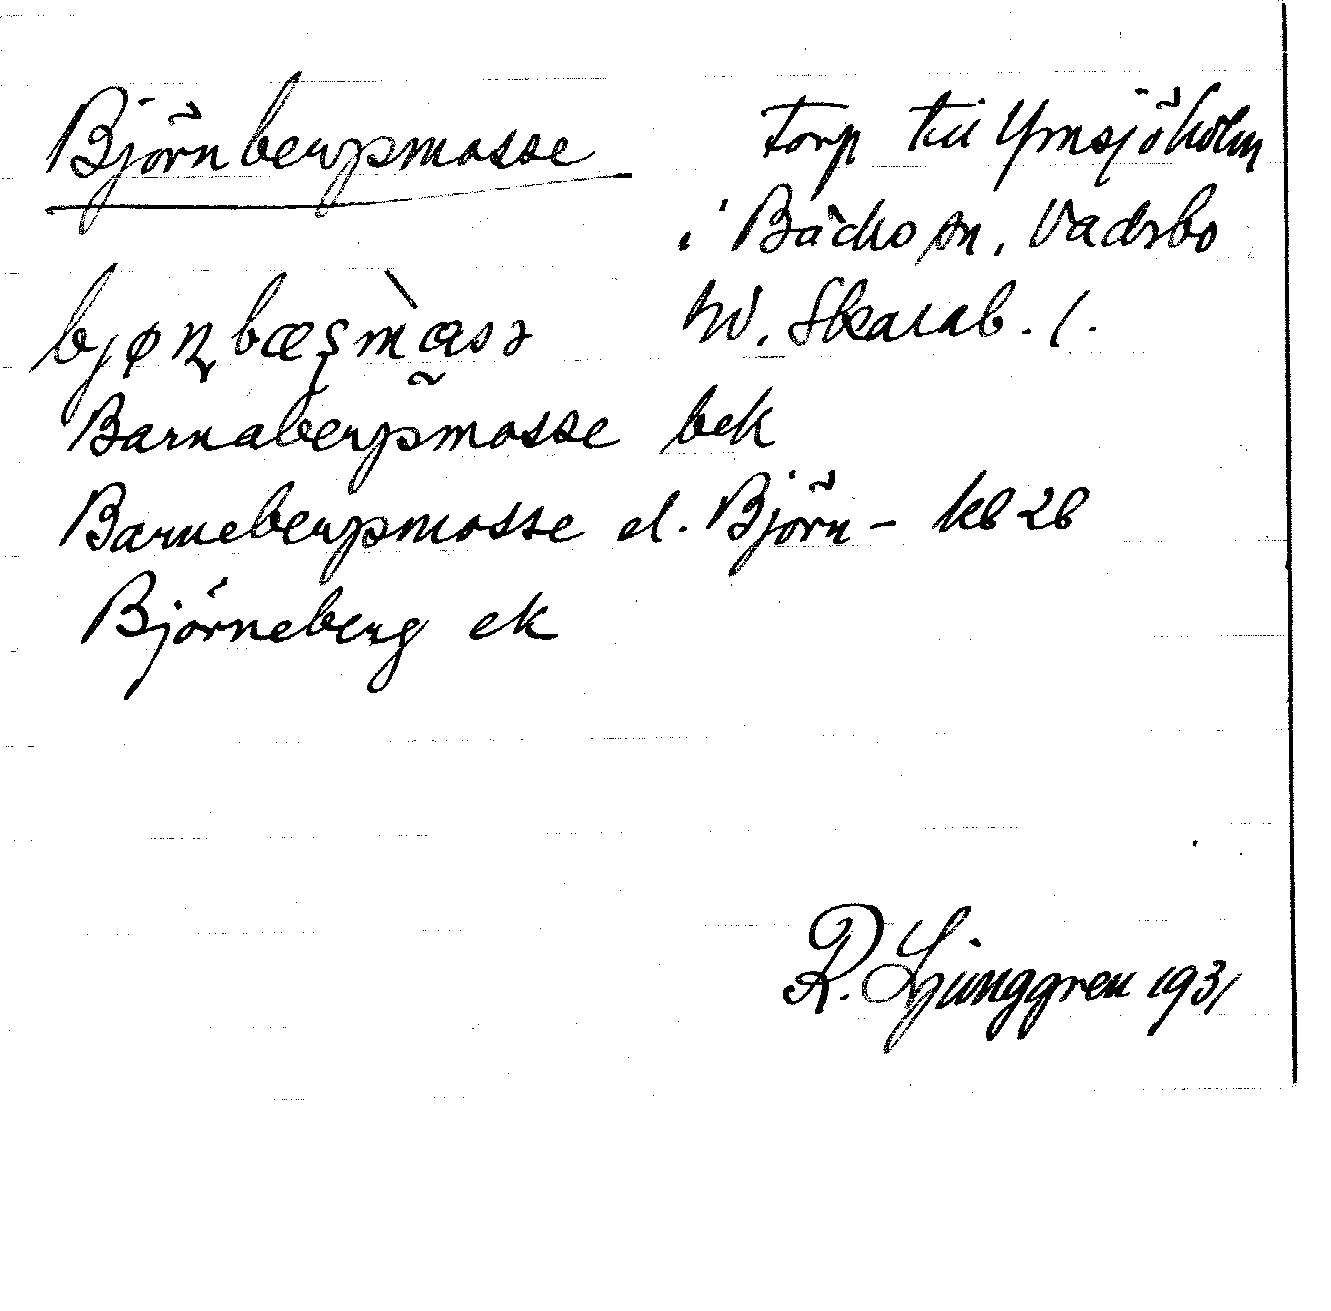 Björnbergsmosse
torp till Ymsjöholm
i Bäcks sn, Vadsbo
hd. Skarab. l.
bjøɳbæʂmàsə
Barnabergsmosse bek
Barnebergsmosse el. Björn- kb 28
Björneberg ek
R. Ljunggren 1931